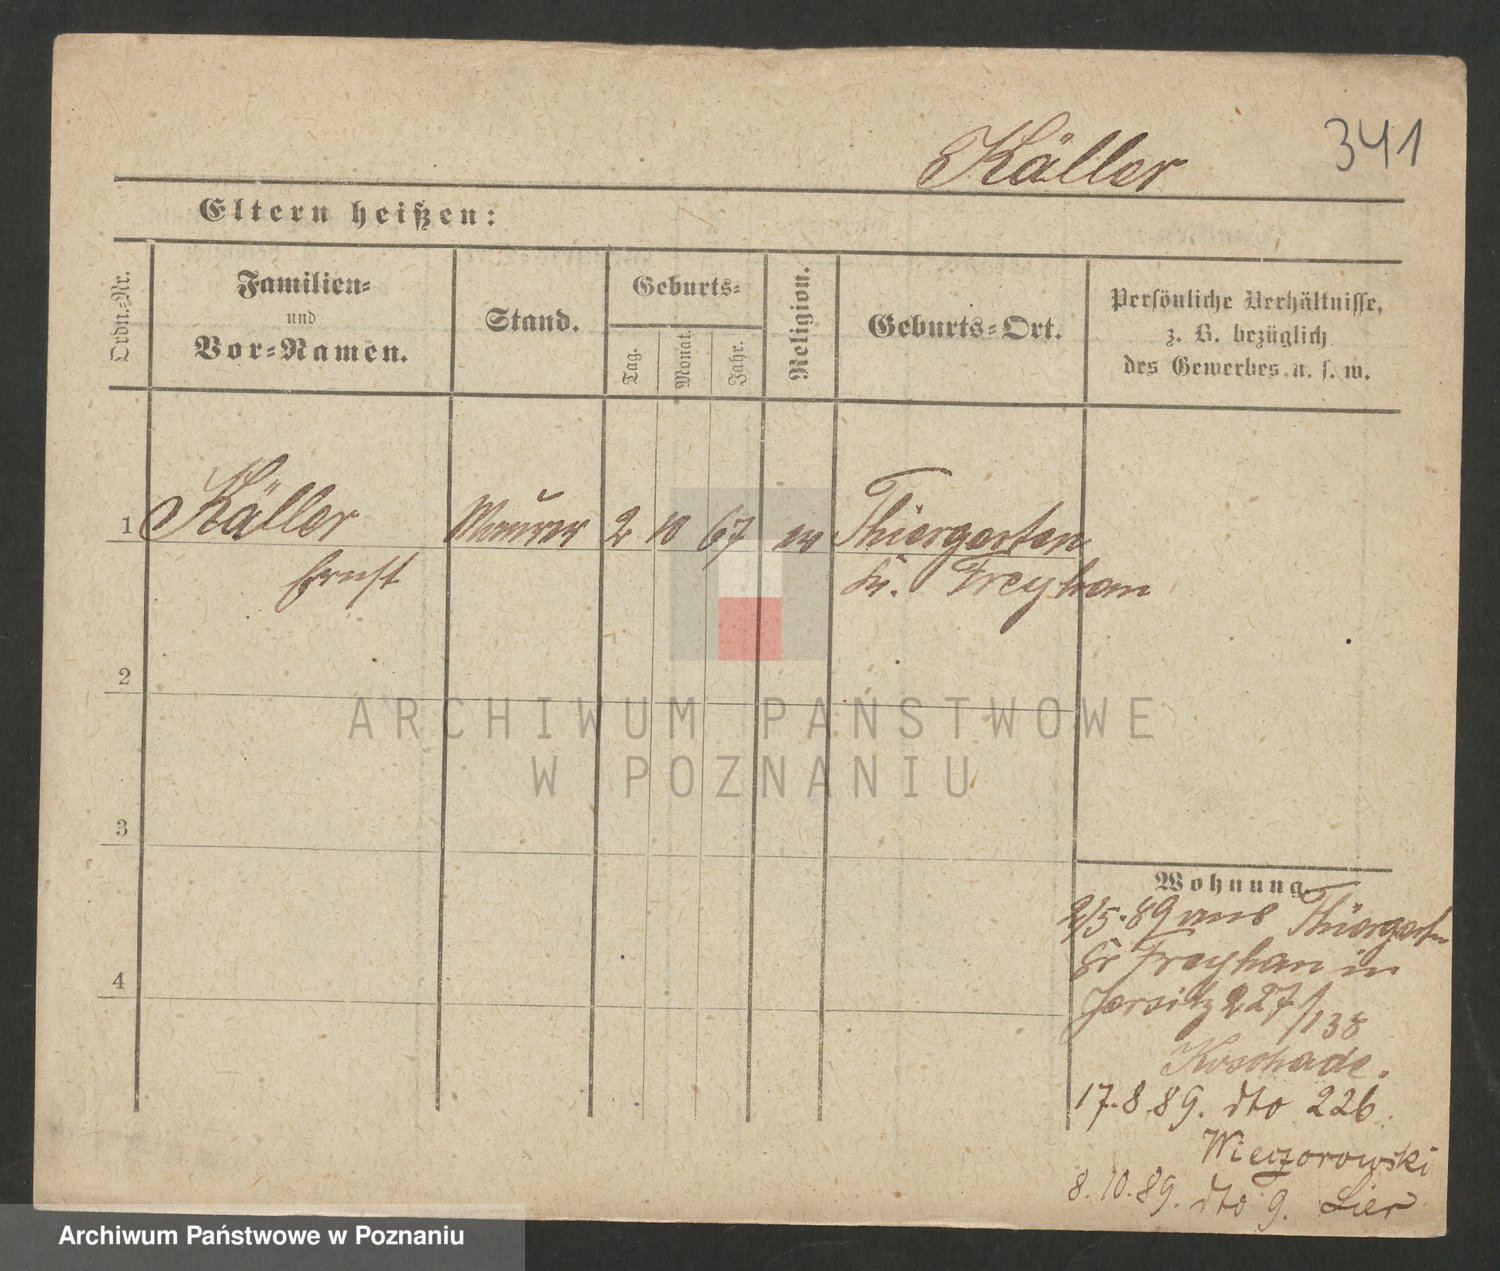 341
Käller
Eltern heißen:
Ordn.-Nr.
Familien-
und
Vor-Namen.
Stand.
Geburts-
Tag.
Monat.
Jahr.
Religion.
Geburts-Ort.
Persönliche Verhältnisse,
z. B. bezüglich
des Gewerbes u. s. w.
1 Käller Maurer 2 10 67 ev Thiergarten
Ernst Kr. Freyhan
2
3
4
Wohnung
2/5.89 aus Thiergarten
Kr Freyhan in
Jersitz 227/138
Koschade.
17.8.89. dto 226.
Wieczorowski
8.10.89. dto 9. Lier
ARCHIWUM PAŃSTWOWE
W POZNANIU
Archiwum Państwowe w Poznaniu